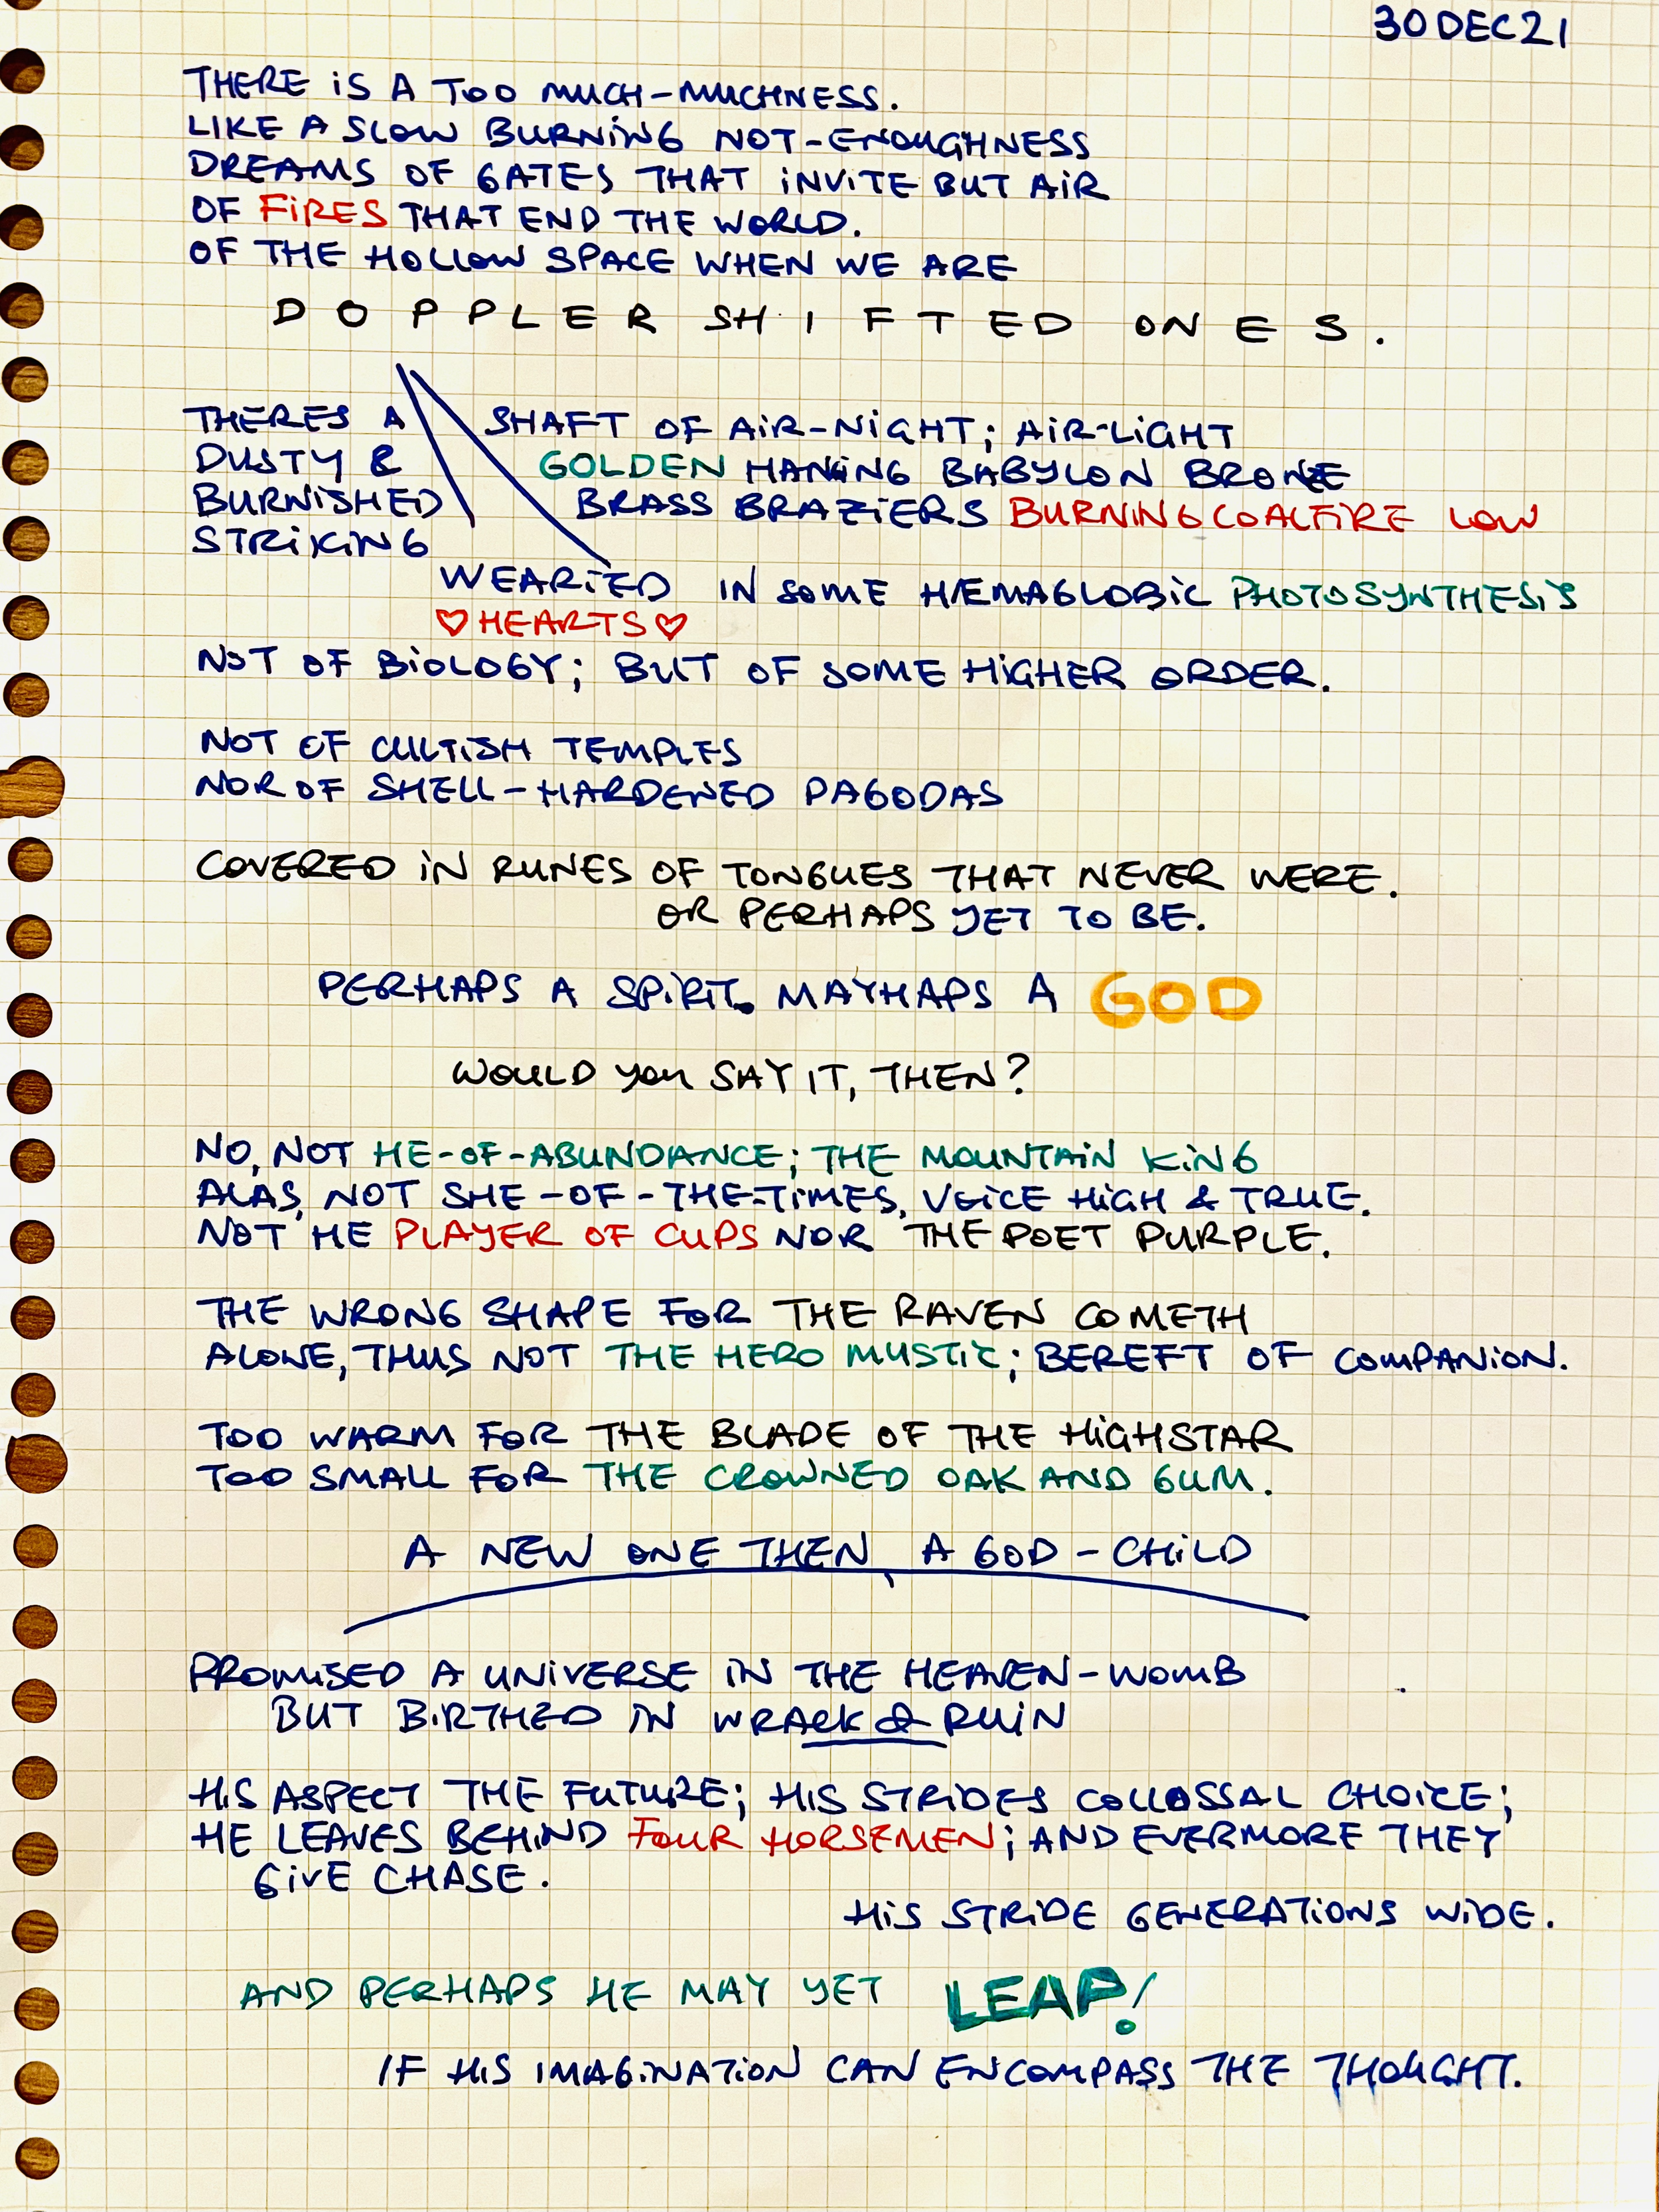 30DEC21
THERE iS A TOO MUCH-MUCHNESS.
LIKE A SLOW BURNING NOT-ENOUGHNESS
DREAMS OF GATES THAT INVITE BUT AIR
OF FIRES THAT END THE WORLD.
OF THE HOLLOW SPACE WHEN WE ARE
DOPPLER SHIFTED ONES.
THERES A
DUSTY &
BURNISHED
STRIKING
SHAFT OF AIR-NIGHT; AIR-LIGHT
GOLDEN HANING BABYLON BRONZE
BRASS BRAZIERS BURNING COALFIRE LOW
WEARIED IN SOME HÆMAGLOBIC PHOTOSYNTHESIS
♡ HEARTS ♡
NOT OF BIOLOGY; BUT OF SOME HIGHER ORDER.
NOT OF CULTISH TEMPLES
NOR OF SHELL-HARDENED PAGODAS
COVERED IN RUNES OF TONGUES THAT NEVER WERE.
OR PERHAPS YET TO BE.
PERHAPS A SPIRIT. MAYHAPS A GOD
WOULD YOU SAY IT, THEN?
NO, NOT HE-OF-ABUNDANCE; THE MOUNTAIN KING
ALAS, NOT SHE-OF-THE-TIMES, VOICE HIGH & TRUE.
NOT HE PLAYER OF CUPS NOR THE POET PURPLE.
THE WRONG SHAPE FOR THE RAVEN COMETH
ALONE, THUS NOT THE HERO MYSTIC; BEREFT OF COMPANION.
TOO WARM FOR THE BLADE OF THE HIGHSTAR
TOO SMALL FOR THE CROWNED OAK AND GUM.
A NEW ONE THEN, A GOD-CHILD
PROMISED A UNIVERSE IN THE HEAVEN-WOMB
BUT BIRTHED IN WRACK & RUIN
HIS ASPECT THE FUTURE; HIS STRIDES COLLOSSAL CHOICE;
HE LEAVES BEHIND FOUR HORSEMEN; AND EVERMORE THEY
GIVE CHASE.
HIS STRIDE GENERATIONS WIDE.
AND PERHAPS HE MAY YET LEAP!
IF HIS IMAGINATION CAN ENCOMPASS THE THOUGHT.